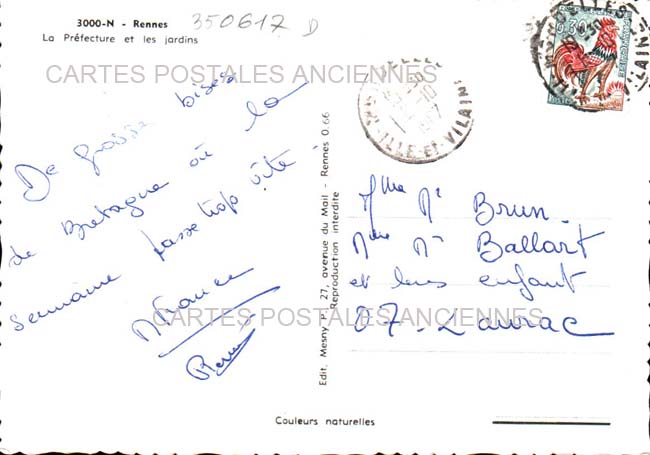 3000-N - Rennes
350617 D
La Préfecture et les jardins
CARTES POSTALES ANCIENNES
De grosses bises
de Bretagne où la
semaine passe trop vite.
Edit. Mesny P. - 27, avenue du Mail - Rennes 0.66
Reproduction interdite
ILLE-ET-VILAINE
0,30
POSTES
Mme Mr Brun.
Mme Mr Ballart
et leurs enfant
07-Laurac
CARTES POSTALES ANCIENNES
Couleurs naturelles